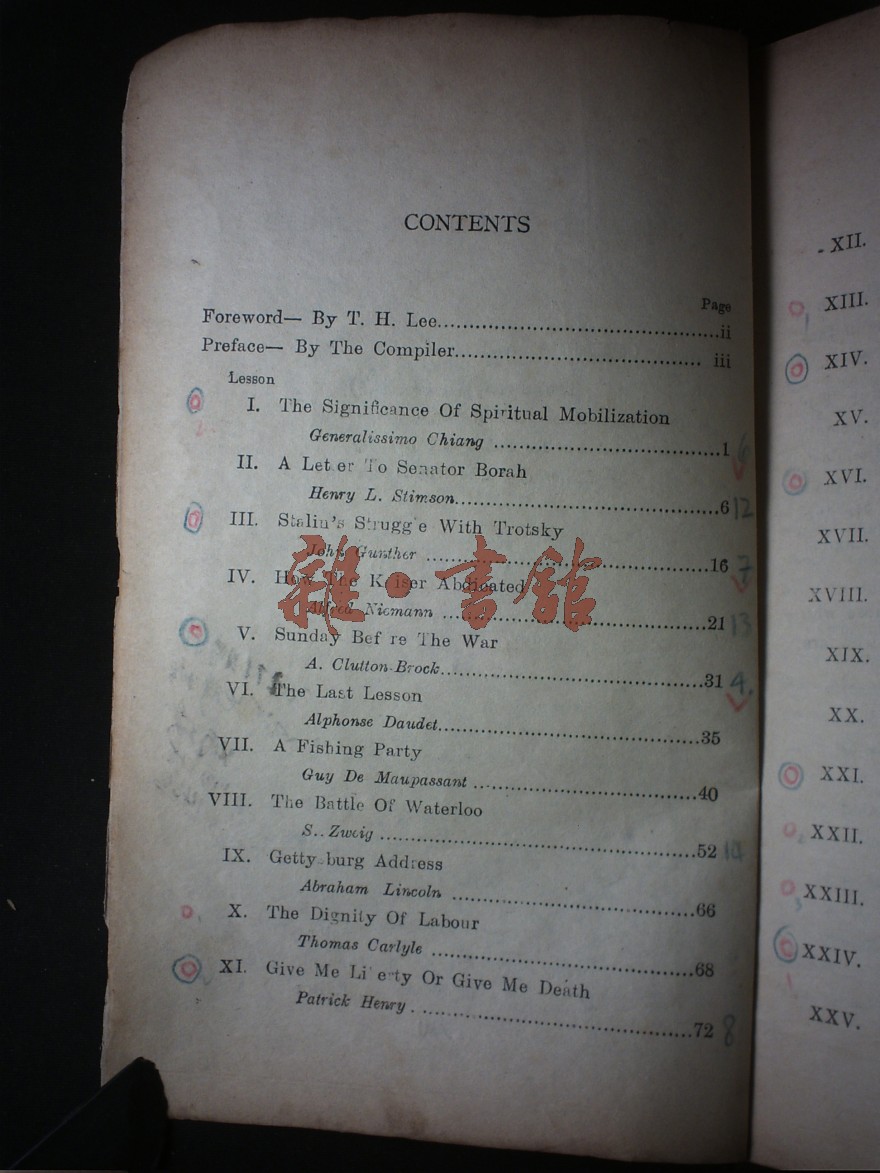 CONTENTS
Page
Foreword— By T. H. Lee..........ii
Preface— By The Compiler.......... iii
Lesson
I. The Significance Of Spiritual Mobilization
Generalissimo Chiang ..........1 6
II. A Let er To Senator Borah
Henry L. Stimson..........6 12
III. Stalin's Strugg e With Trotsky
John Gunther ..........16 7
IV. How The Kaiser Abdicated
Alfred Niemann ..........21 13
V. Sunday Bef re The War
A. Clutton-Brock..........31 4.
VI. The Last Lesson
Alphonse Daudet..........35
VII. A Fishing Party
Guy De Maupassant ..........40
VIII. The Battle Of Waterloo
S.. Zweig ..........52 14
IX. Getty burg Address
Abraham Lincoln ..........66
X. The Dignity Of Labour
Thomas Carlyle ..........68
XI. Give Me Li erty Or Give Me Death
Patrick Henry ..........72 8
XII.
XIII.
XIV.
XV.
XVI.
XVII.
XVIII.
XIX.
XX.
XXI.
XXII.
XXIII.
XXIV.
XXV.
雜·書館